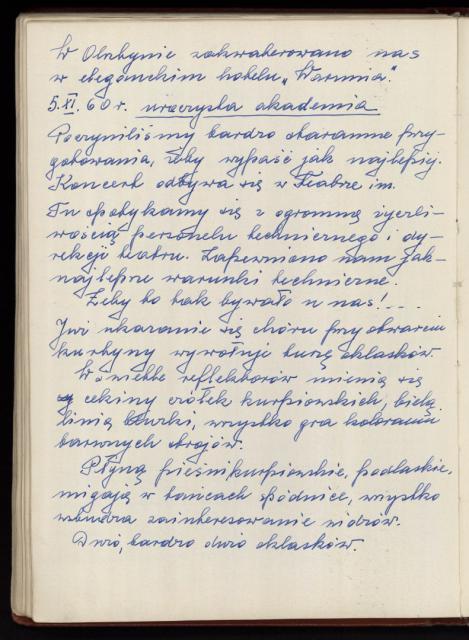 W Olsztynie zakwaterowano nas
w eleganckim hotelu „Warmia”.
5.XI.60 r. uroczysta akademia
Poczyniliśmy bardzo staranne przy-
gotowania, żeby wypaść jak najlepiej.
Koncert odbywa się w Teatrze im.
Tu spotykamy się z ogromną życzli-
wością personelu technicznego i dy-
rekcji teatru. Zapewniono nam jak-
najlepsze warunki techniczne.
Żeby to tak bywało u nas!...
Już ukazanie się chóru przy otwarciu
kurtyny wywołuje burzę oklasków.
W świetle reflektorów mienią się
cekiny czółek kurpiowskich, bielą
linią biurki, wszystko gra kolorami
barwnych strojów.
Płyną pieśni kurpiowskie, podlaskie,
migają w tańcach spódnice, wszystko
wzbudza zainteresowanie widzów.
Dużo, bardzo dużo oklasków.